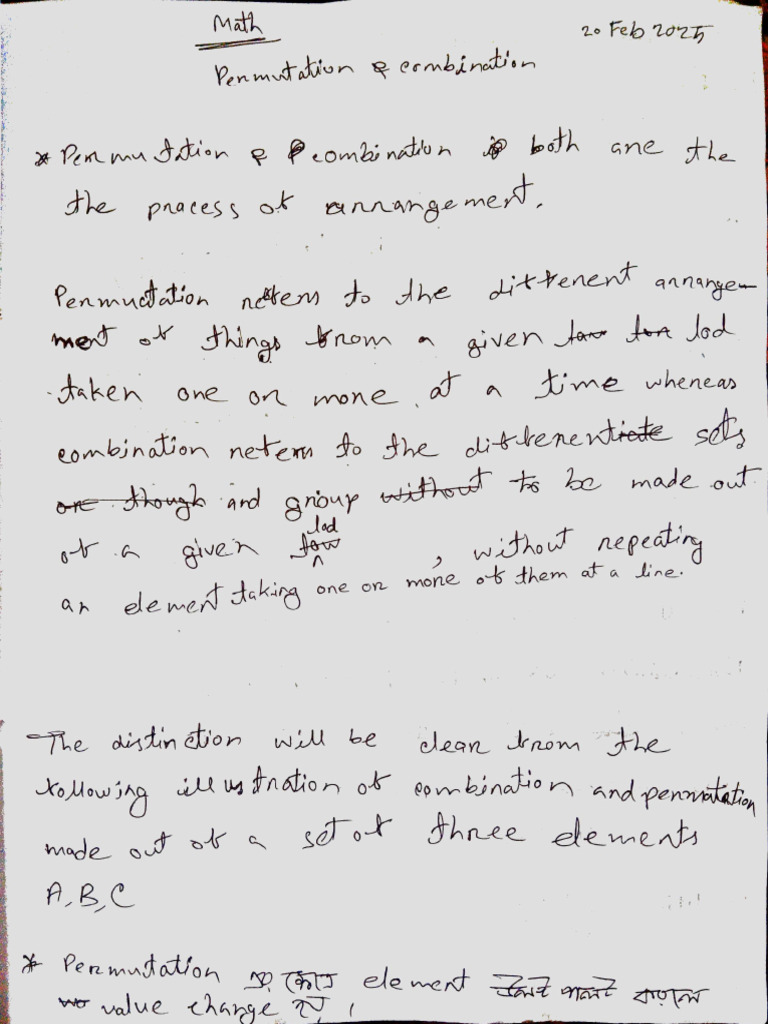 Math
20 Feb 2025
Permutation & combination
* Permutation & combination both are the
the process of arrangement.
Permutation refers to the different arrange-
ment of things from a given lod
taken one or more at a time whereas
combination refers to the different sets
and group to be made out
of a given lod, without repeating
an element taking one or more of them at a line.
The distinction will be clear from the
following illustration of combination and permutation
made out of a set of three elements
A, B, C
* Permutation এ কোনো element উলট পালট করলে
value change হয়।